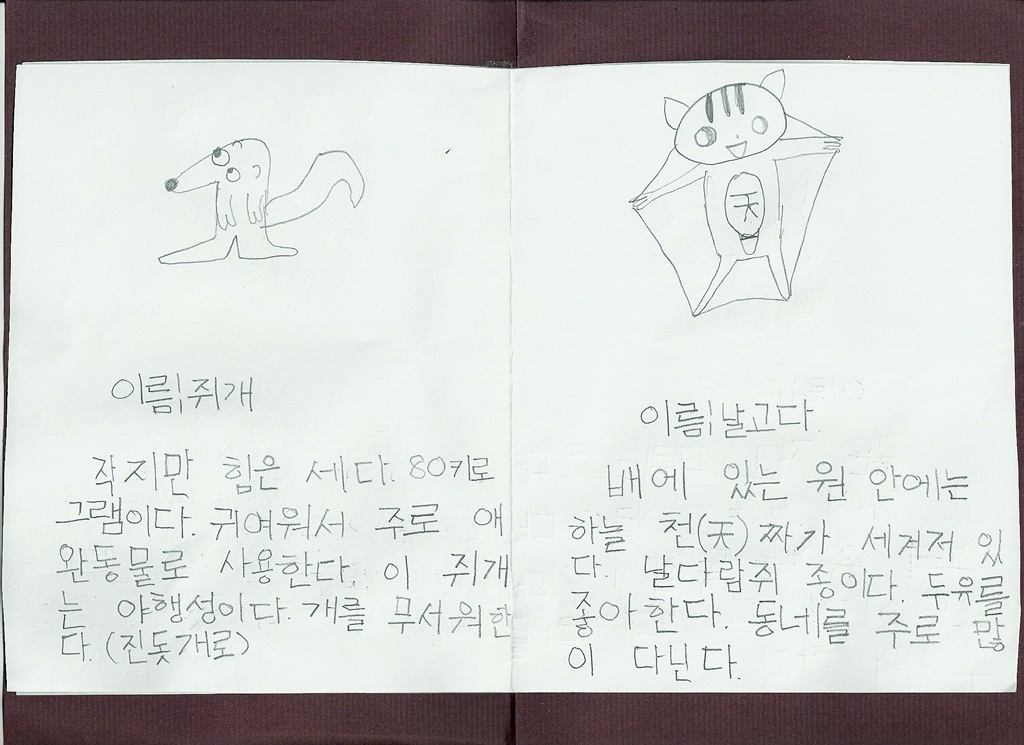 이름|쥐개
작지만 힘은 세다. 80키로
그램이다. 귀여워서 주로 애
완동물로 사용한다. 이 쥐개
는 야행성이다. 개를 무서워한
다. (진돗개로)
天
이름|날고다
배에 있는 원 안에는
하늘 천(天)짜가 세겨저 있
다. 날다람쥐 종이다. 두유를
좋아한다. 동네를 주로 많
이 다닌다.